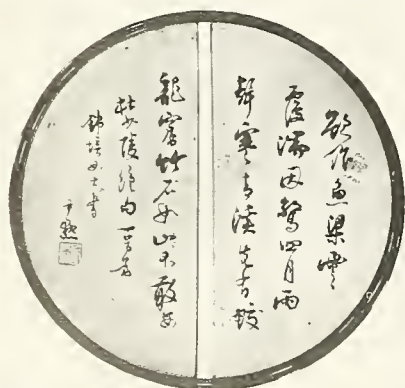 欲作魚梁雲
覆湍因驚四月雨
聲寒青溪先有蛟
龍窟竹石如山不敢安
杜少陵絕句一首為
女士書
尹默